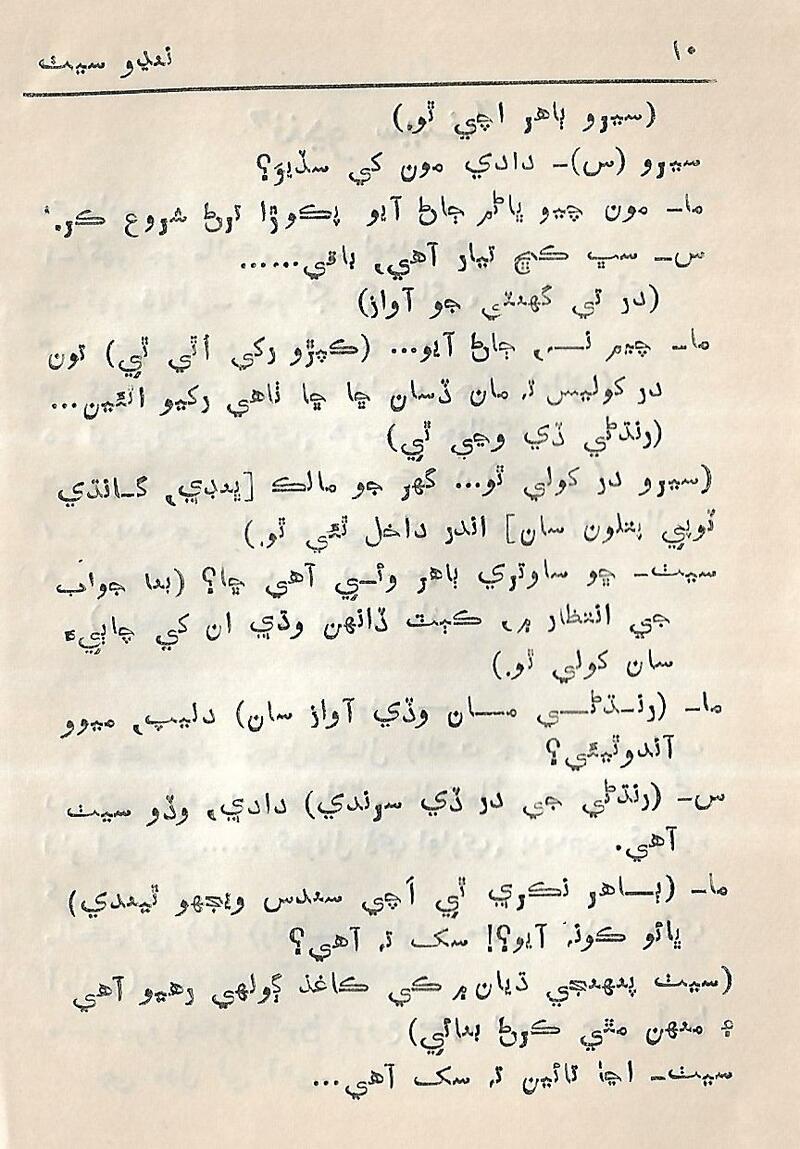 ۱۰
ننڍو سيٺ
(سيرو ٻاهر اچي ٿو.)
سيرو (س)۔ دادي مون کي سڏيوَ؟
ما۔ مون چيو ڀائڻم ڄاڻ آيو پڪوڙا ترڻ شروع ڪر.
س۔ سڀ ڪڇ تيار آهي، باقي......
(در تي گهنٽي جو آواز)
ما۔ چيم نہ، ڄاڻ آيو... (ڪپڙو رکي اُٿي ٿي) تون
در کوليس تہ مان ڏسان ڇا ڇا ٺاهي رکيو اٿئين...
(رنڌڻي ڏي وڃي ٿي)
(سيرو در کولي ٿو... گهر جو مالڪ [ڀنڊي، گانڌي
ٽوپي پتلون سان] اندر داخل ٿئي ٿو.)
سيٺ۔ ڇو ساوتري ٻاهر وئي آهي ڇا؟ (بنا جواب
جي انتظار ۾، ڪٻٽ ڏانهن وڌي ان کي چاٻيءَ
سان کولي ٿو.)
ما۔ (رنڌڻي مان وڏي آواز سان) دليپ، ميوو
آندوٿيئي؟
س۔ (رنڌڻي جي در ڏي سرندي) دادي، وڏو سيٺ
آهي.
ما۔ (ٻاهر نڪري ٿي اَچي سندس ويجهو ٿيندي)
ڀائو ڪونہ آيو؟! سک تہ آهي؟
(سيٺ پنهنجي ڌيان ۾ کي ڪاغذ ڳولهي رهيو آهي
۽ منهن مٿي ڪرڻ بنائي)
سيٺ۔ اڃا تائين تہ سک آهي...